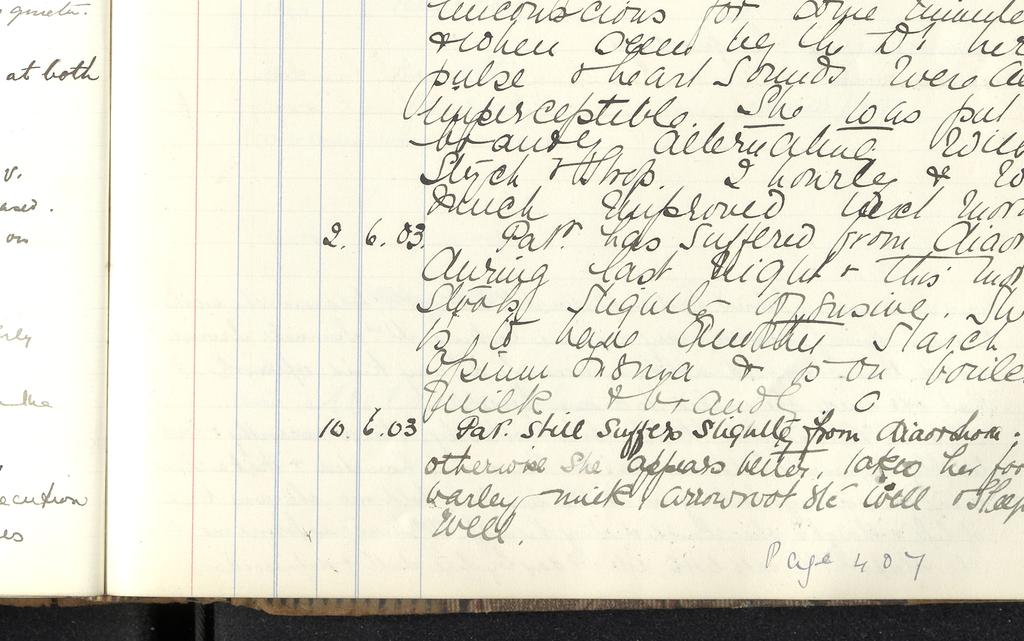 quieter.
at both
v.
on
ecution
unconscious for some minute
& when seen by the Dr her
pulse & heart sounds were a
imperceptible. She was put
brandy alternating with
Stych & Strop. 2 hourly &
much improved next mor
2. 6. 03. Pat. has suffered from diaor
during last night & this mo
stools slightly offensive. S
is to have another Starch
opium enema & is on boile
milk & brandy.
10 6.03 Pat. still suffers slightly from diaorrhoea.
otherwise she appears better, takes her foo
barley milk, arrowroot etc well & sleep
well.
Page 407